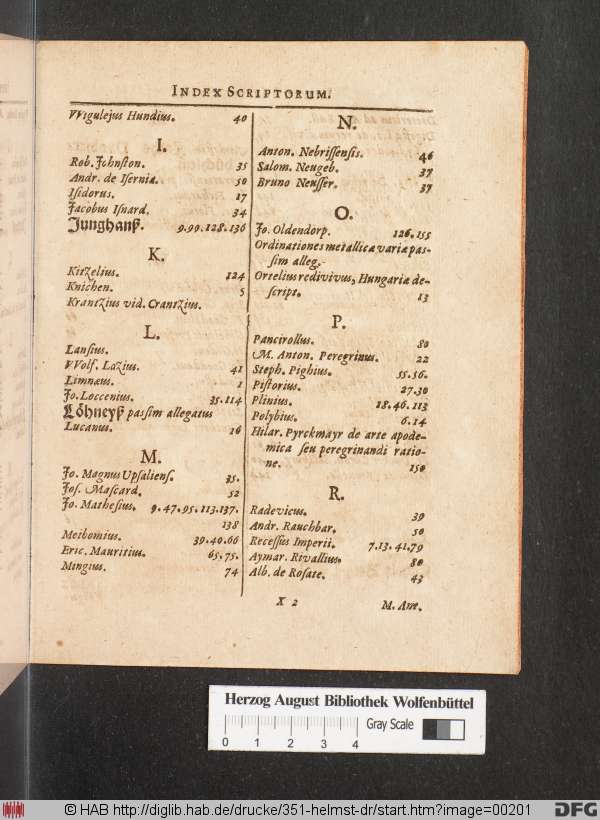 INDEX SCRIPTORUM.
VVigulejus Hundius. 40
I.
Rob. Johnſton. 35
Andr. de Iſernia. 50
Iſidorus. 17
Jacobus Iſnard. 34
Junghanß. 9.99.128.136
K.
Kitzelius. 124
Knichen. 5
Krantzius vid. Crantzius.
L.
Lanſius.
VVolf. Lazius. 41
Limnæus. 1
Jo. Loccenius. 35.114
Löhneyß paſsim allegatus
Lucanus. 16
M.
Jo. Magnus Upſalienſ. 35.
Joſ. Maſcard. 52
Jo. Matheſius. 9.47.95.113.137.
138
Meibomius. 39.40.66
Eric. Mauritius. 65.75.
Mingius. 74
N.
Anton. Nebriſſenſis. 46
Salom. Neugeb. 37
Bruno Neuſſer. 37
O.
Jo. Oldendorp. 126.155
Ordinationes metallicæ variæ paſ-
ſim alleg.
Ortelius redivivus, Hungariæ de-
ſcript. 13
P.
Pancirollus. 80
M. Anton. Peregrinus. 22
Steph. Pighius. 55.56.
Piſtorius. 27.30
Plinius. 18.46.113
Polybius. 6.14
Hilar. Pyrckmayr de arte apode-
mica ſeu peregrinandi ratio-
ne. 150
R.
Radevicus. 39
Andr. Rauchbar. 50
Receſſus Imperii. 7.13.41.79
Aymar. Rivallius. 80
Alb. de Roſate. 43
X 2 M. Ant.
Herzog August Bibliothek Wolfenbüttel
0 1 2 3 4 Gray Scale
© HAB http://diglib.hab.de/drucke/351-helmst-dr/start.htm?image=00201
DFG